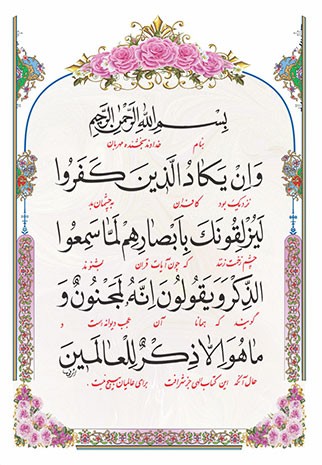 بِسْمِ اللهِ الرَّحْمٰنِ الرَّحِیْمِ
بنام خداوند بخشنده مهربان
وَاِنْ یَکَادُ الَّذینَ کَفَرُوا
نزدیک بود کافران به چشمان بد
لَیُزْلِقُونَكَ بِاَبْصَارِهِمْ لَمَّا سَمِعُوا
چشم زخمت زنند که چون آیات قرآن بشنوند
الذِّکْرَ وَیَقُولُونَ اِنَّهُ لَمَجْنُونٌ وَ
گویند که همانا آن عجب دیوانه است و
مَاهُوَ اِلاّ ذِکْرٌ لِلْعَالَمِینَ
حال آنکه این کتاب الهی جز شرافت برای عالمیان هیچ نیست.